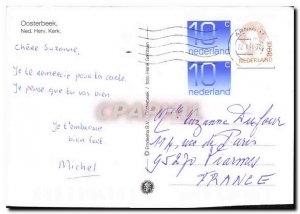 Oosterbeek.
Ned. Herv. Kerk.
Chère Suzanne,
Je te remercie pour ta carte.
Je pense que tu vas bien
Je t'embrasse
bien fort
Michel
10 c
nederland
10 c
nederland
NEDERLAND
Mlle Suzanne Dufour
11A, rue de Paris
95270 Viarmes
FRANCE